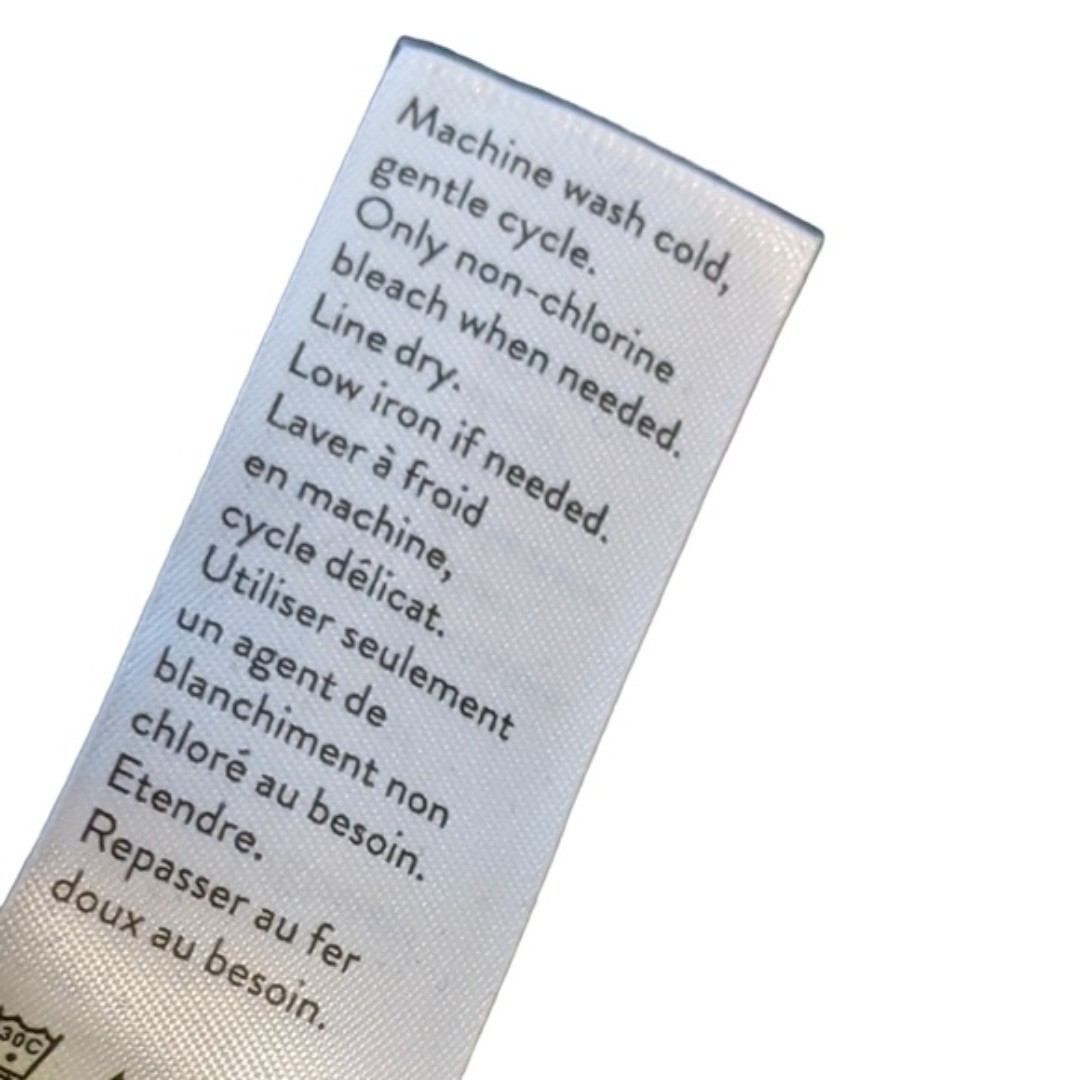 Machine wash cold,
gentle cycle.
Only non-chlorine
bleach when needed.
Line dry.
Low iron if needed.
Laver à froid
en machine,
cycle délicat.
Utiliser seulement
un agent de
blanchiment non
chloré au besoin.
Etendre.
Repasser au fer
doux au besoin.
30C